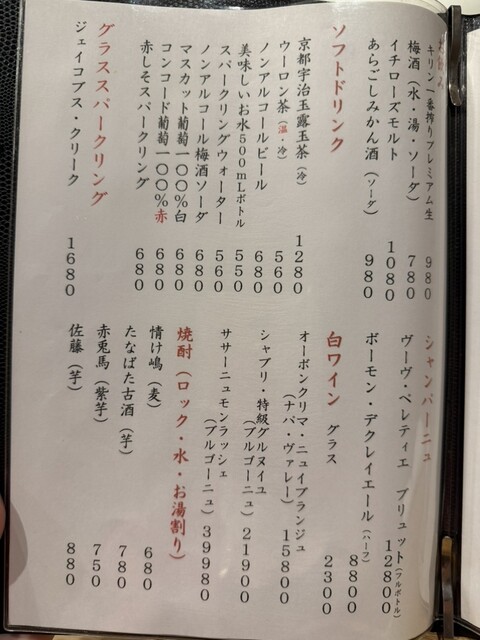 キリン一番搾りプレミアム生 980
梅酒（水・湯・ソーダ） 780
イチローズモルト 1080
あらごしみかん酒（ソーダ） 980
ソフトドリンク
京都宇治玉露玉茶（冷） 1280
ウーロン茶（温・冷） 560
ノンアルコールビール 680
美味しいお水500mLボトル 550
スパークリングウォーター 560
ノンアルコール梅酒ソーダ 680
マスカット葡萄一〇〇%白 680
コンコード葡萄一〇〇%赤 680
赤しそスパークリング 680
グラススパークリング
ジェイコブス・クリーク 1680
シャンパーニュ
ヴーヴ・ペレティエ ブリュット（フルボトル） 12800
ボーモン・デクレイエール（ハーフ） 8800
白ワイン グラス 2300
オーボンクリマ・ニュイブランジュ
（ナパ・ヴァレー） 15800
シャブリ・特級グルヌイユ
（ブルゴーニュ） 21900
ササーニュモンラッシェ
（ブルゴーニュ） 39980
焼酎（ロック・水・お湯割り）
情け嶋（麦） 680
たなばた古酒（芋） 780
赤兎馬（紫芋） 750
佐藤（芋） 880